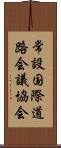 常設国際道
路会議協会